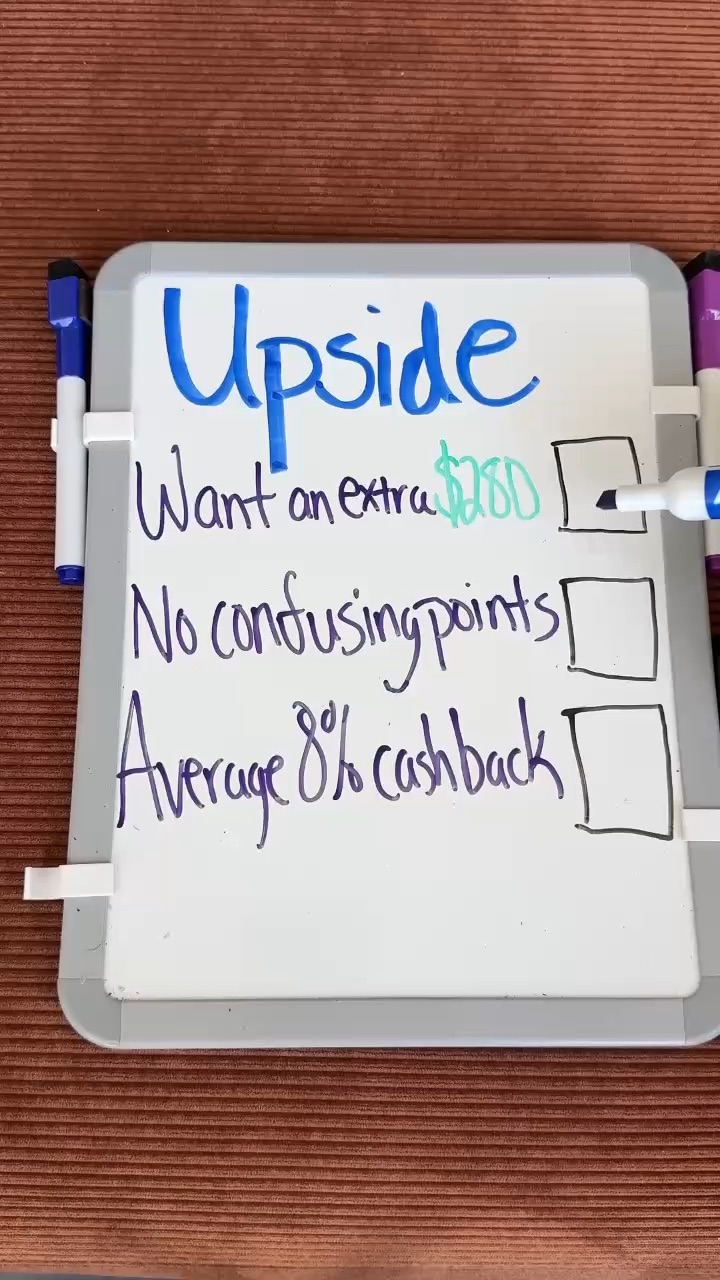 Upside
Want an extra $280
No confusing points
Average 8% cash back